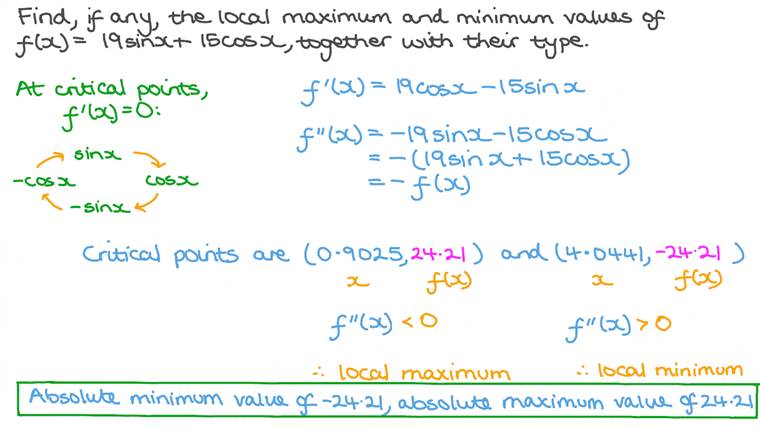 Find, if any, the local maximum and minimum values of
f(x) = 19sinx + 15cosx, together with their type.
At critical points,
f'(x) = 0:
sinx
-cosx cosx
-sinx
f'(x) = 19cosx - 15sinx
f''(x) = -19sinx - 15cosx
= -(19sinx + 15cosx)
= - f(x)
Critical points are (0·9025, 24·21) and (4·0441, -24·21)
x f(x) x f(x)
f''(x) < 0 f''(x) > 0
∴ local maximum ∴ local minimum
Absolute minimum value of -24·21, absolute maximum value of 24·21